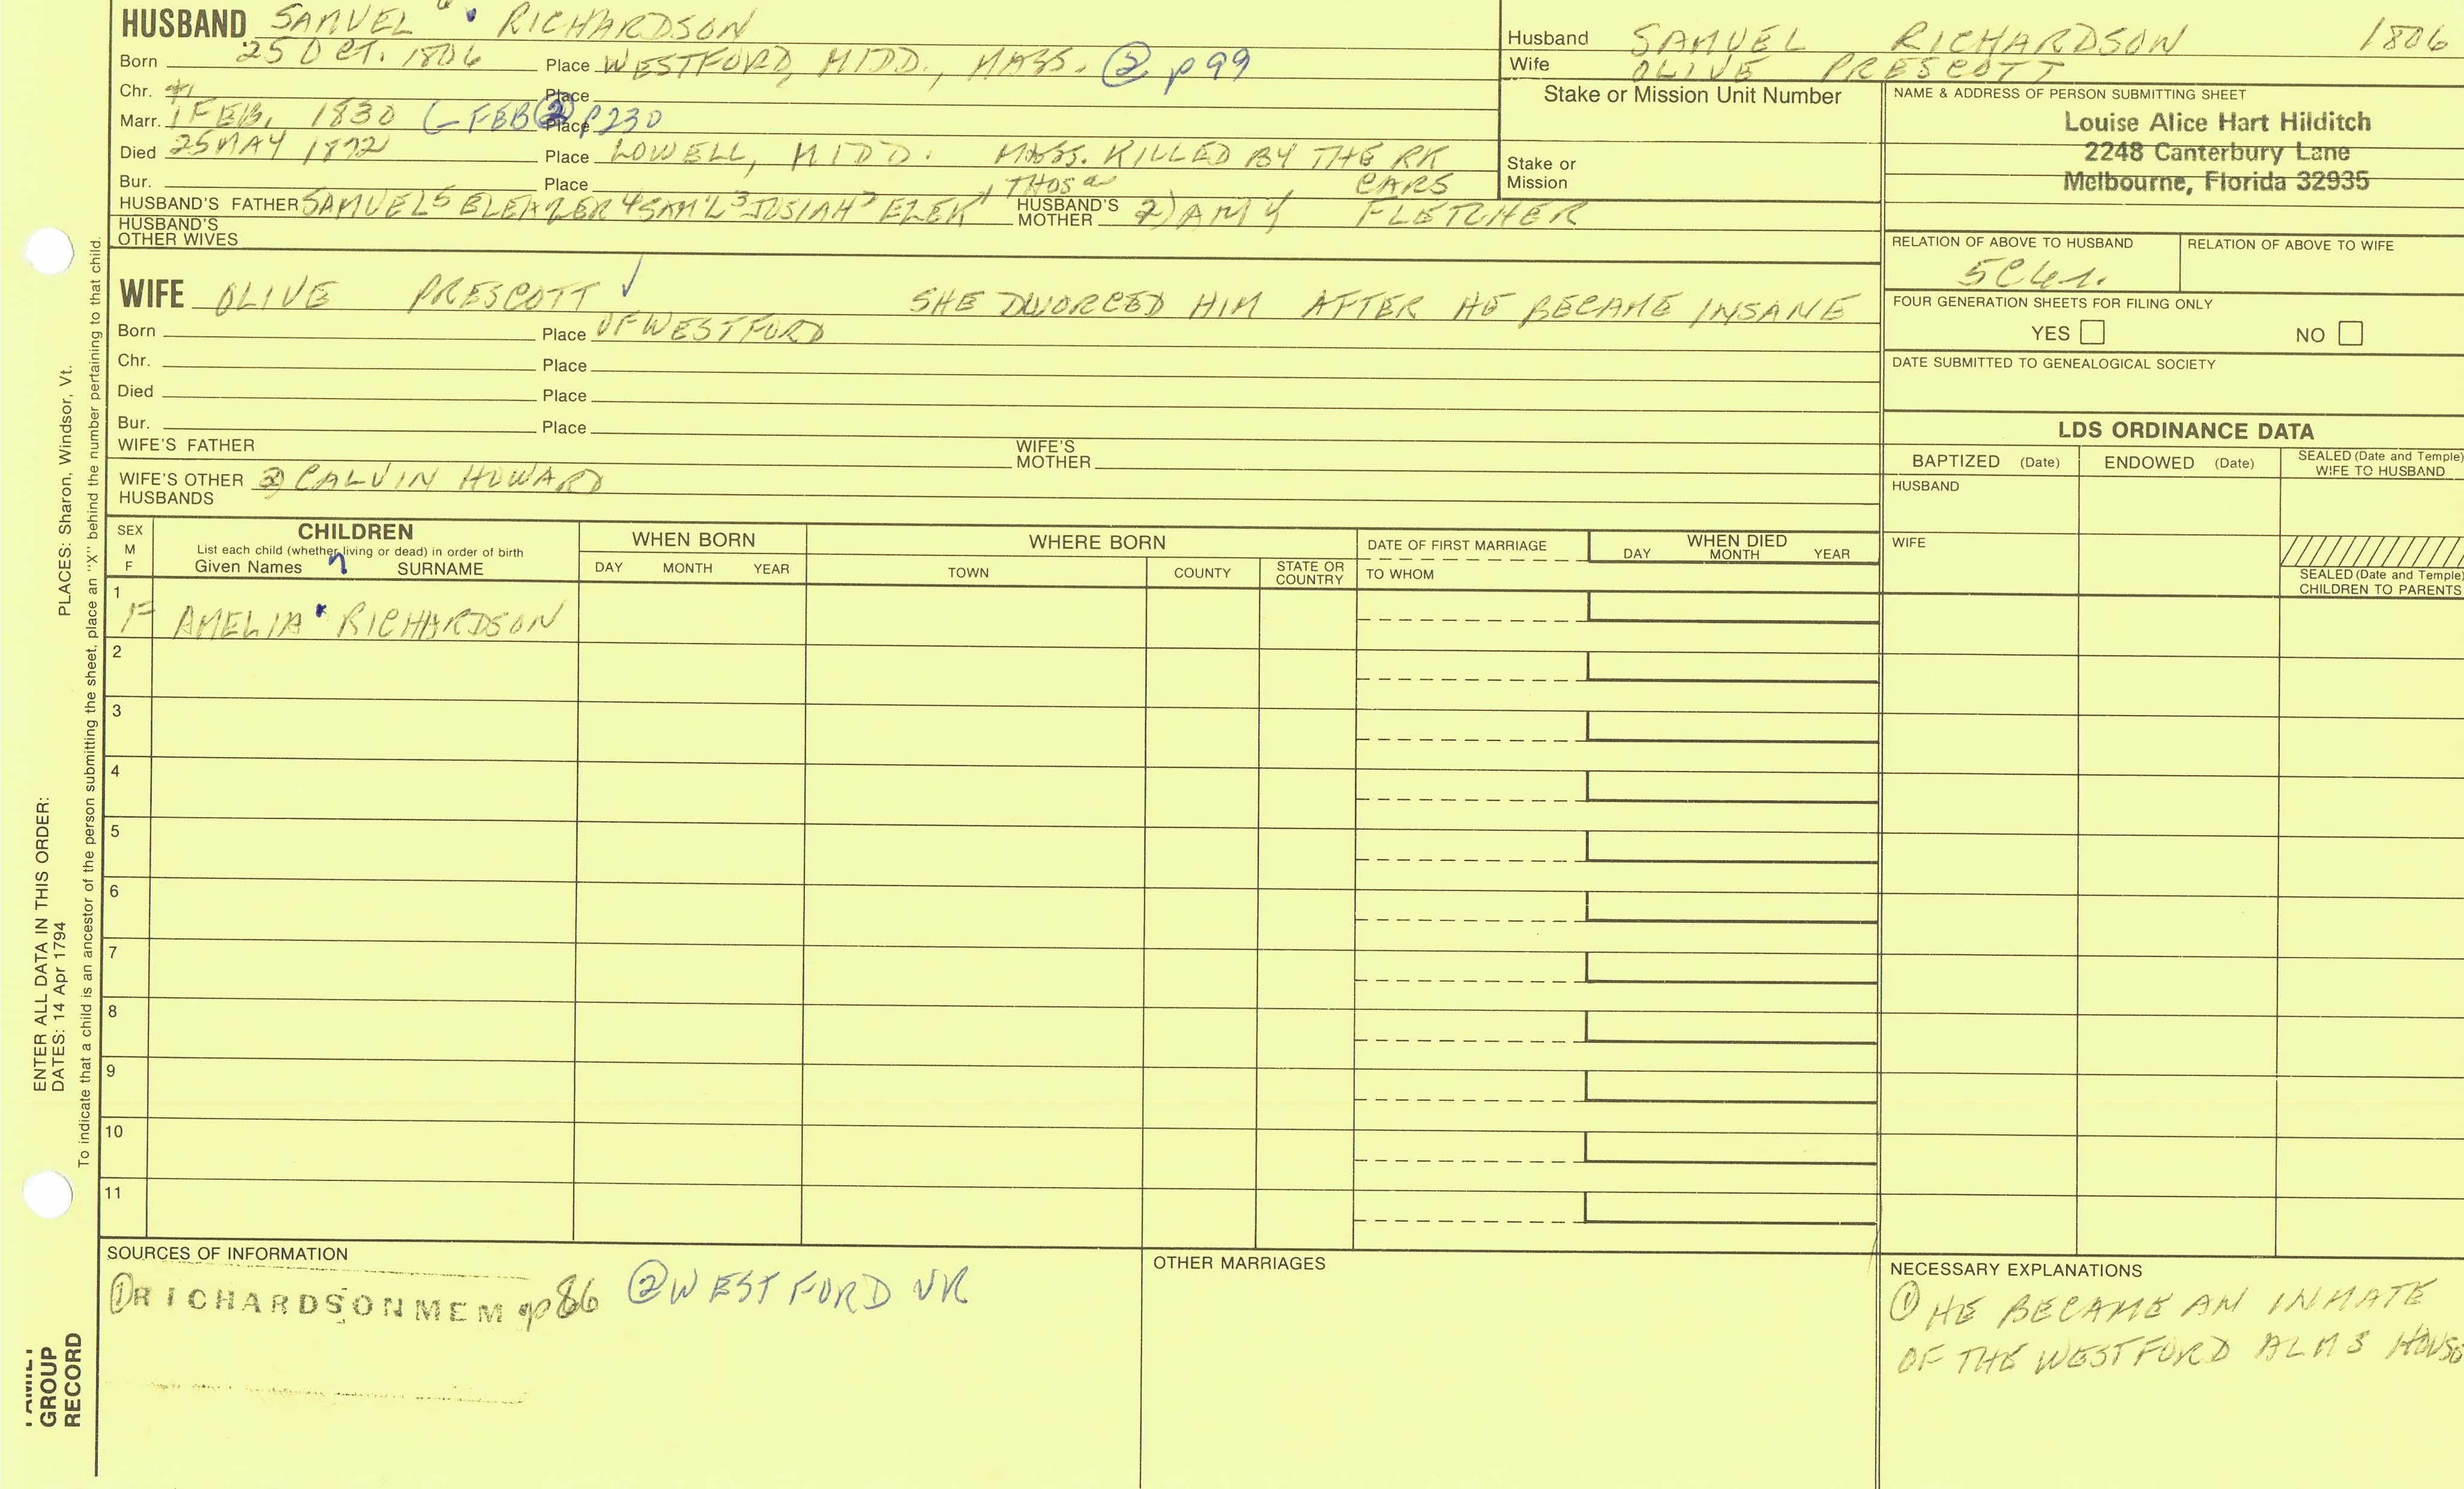 HUSBAND SAMUEL RICHARDSON
Born 25 OCT. 1806 Place WESTFORD, MIDD., MASS. ② p 99
Chr. Place
Marr. 1 FEB. 1830 FEB ② Place p 230
Died 25 MAY 1872 Place LOWELL, MIDD. MASS. KILLED BY THE RR CARS
Bur. Place
HUSBAND'S FATHER SAMUEL5 ELEAZER4 SAM'L3 JOSIAH2 EZEK1 THOS HUSBAND'S MOTHER 2) AMY FLETCHER
HUSBAND'S OTHER WIVES
WIFE OLIVE PRESCOTT ✓ SHE DIVORCED HIM AFTER HE BECAME INSANE
Born Place OF WESTFORD
Chr. Place
Died Place
Bur. Place
WIFE'S FATHER WIFE'S MOTHER
WIFE'S OTHER HUSBANDS ② CALVIN HOWARD
Husband SAMUEL RICHARDSON 1806
Wife OLIVE PRESCOTT
Stake or Mission Unit Number
Stake or
Mission
NAME & ADDRESS OF PERSON SUBMITTING SHEET
Louise Alice Hart Hilditch
2248 Canterbury Lane
Melbourne, Florida 32935
RELATION OF ABOVE TO HUSBAND RELATION OF ABOVE TO WIFE
FOUR GENERATION SHEETS FOR FILING ONLY
YES NO
DATE SUBMITTED TO GENEALOGICAL SOCIETY
LDS ORDINANCE DATA
BAPTIZED (Date) ENDOWED (Date) SEALED (Date and Temple) WIFE TO HUSBAND
HUSBAND
WIFE
SEALED (Date and Temple) CHILDREN TO PARENTS
SEX M F
CHILDREN
List each child (whether living or dead) in order of birth
Given Names SURNAME
WHEN BORN
DAY MONTH YEAR
WHERE BORN
TOWN COUNTY STATE OR COUNTRY
DATE OF FIRST MARRIAGE
TO WHOM
WHEN DIED
DAY MONTH YEAR
1 F AMELIA RICHARDSON
2
3
4
5
6
7
8
9
10
11
SOURCES OF INFORMATION
① RICHARDSON MEM p 86 ② WESTFORD VR
OTHER MARRIAGES
NECESSARY EXPLANATIONS
① HE BECAME AN INMATE
OF THE WESTFORD ALMS HOUSE
ENTER ALL DATA IN THIS ORDER:
DATES: 14 Apr 1794 PLACES: Sharon, Windsor, Vt.
To indicate that a child is an ancestor of the person submitting the sheet, place an "X" behind the number pertaining to that child.
FAMILY
GROUP
RECORD